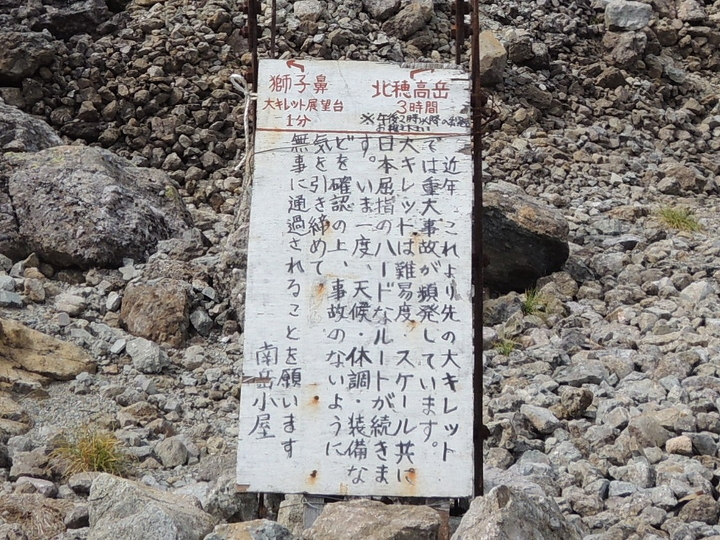 獅子鼻
大キレット展望台
1分
北穂高岳
3時間
※午後2時以降の出発
お控え下さい
近年、これより先の大キレット
では重大事故が頻発しています。
大キレットは難易度・スケール共に
日本屈指のハードなルートが続きま
す。いま一度、天候・体調・装備な
どを確認の上、事故のないように
気を引き締めて
無事に通過されることを願います
南岳小屋